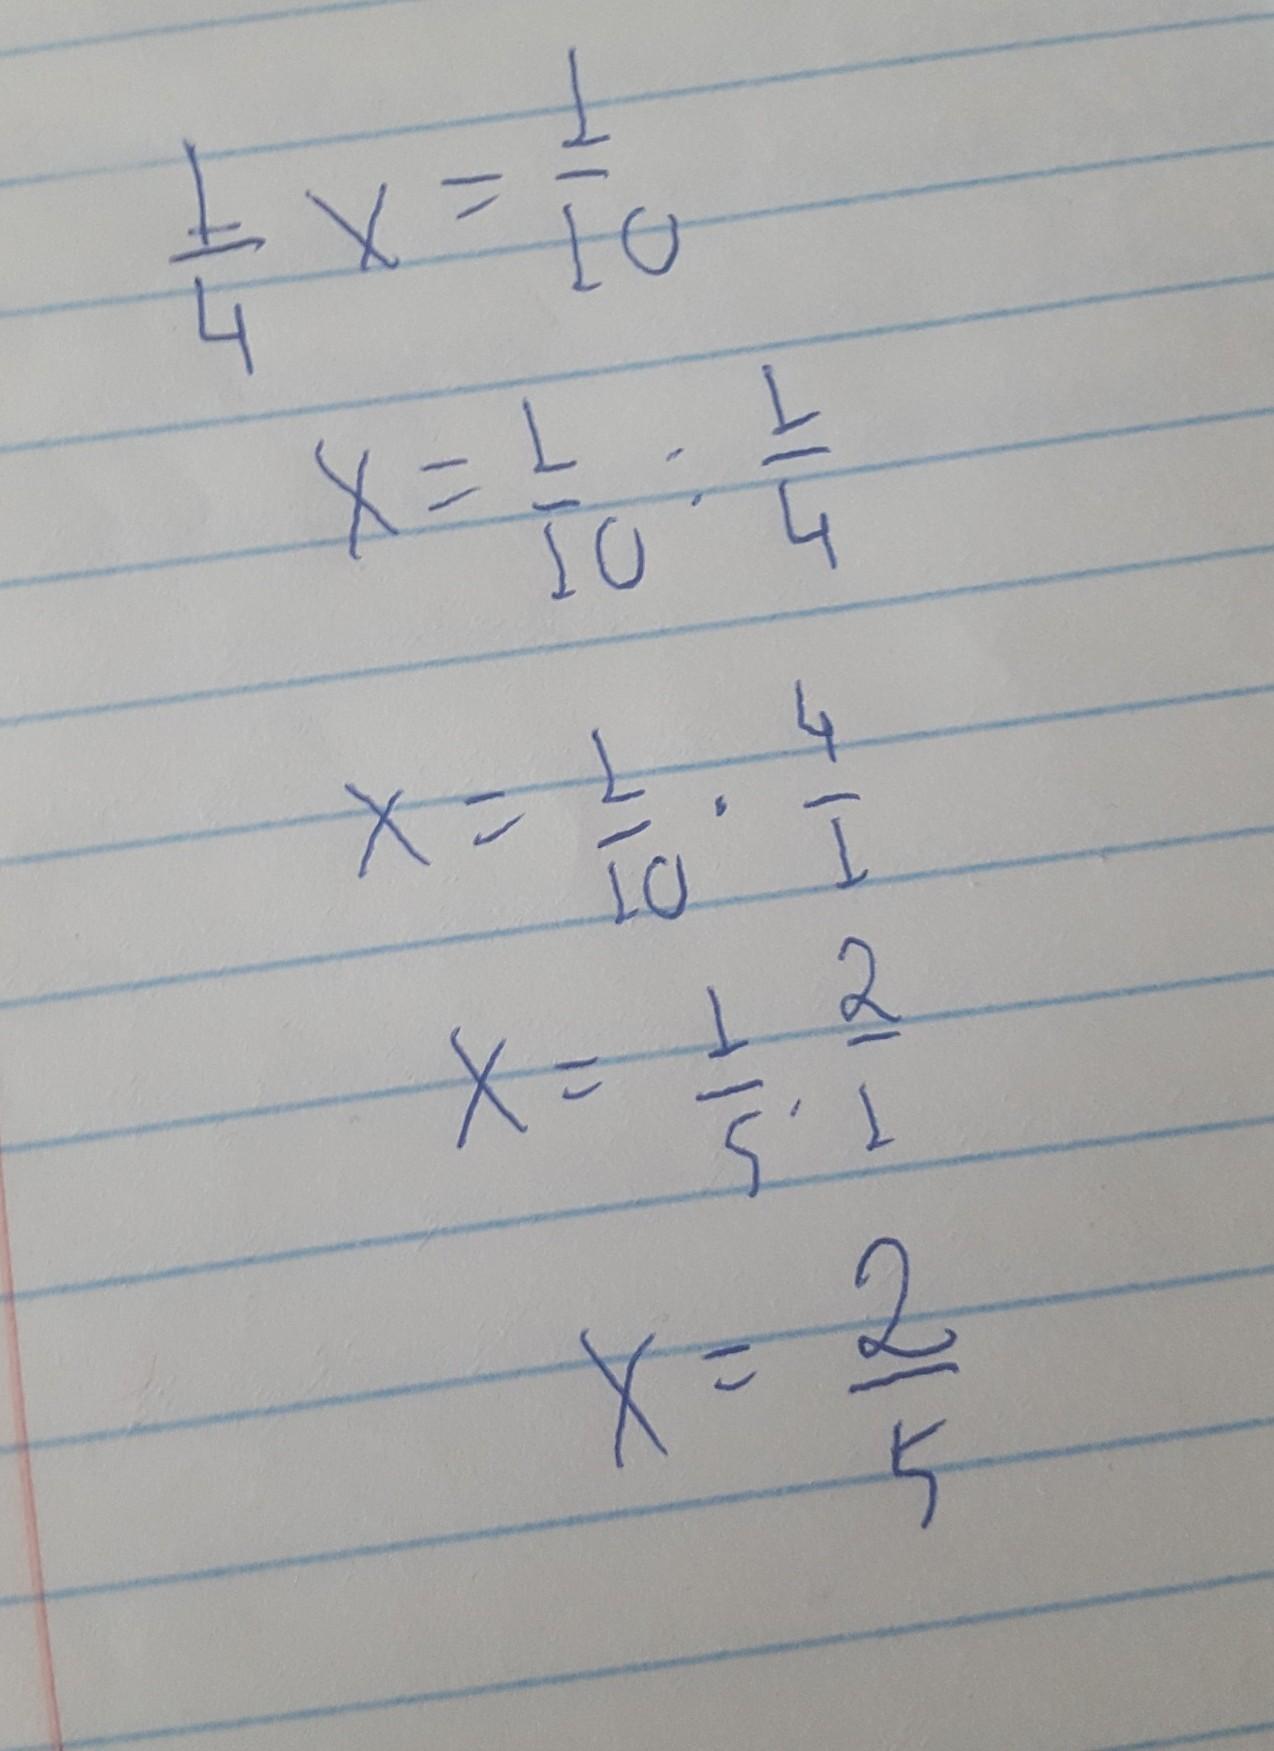 1/4 x = 1/10
x = 1/10 : 1/4
x = 1/10 · 4/1
x = 1/5 · 2/1
x = 2/5